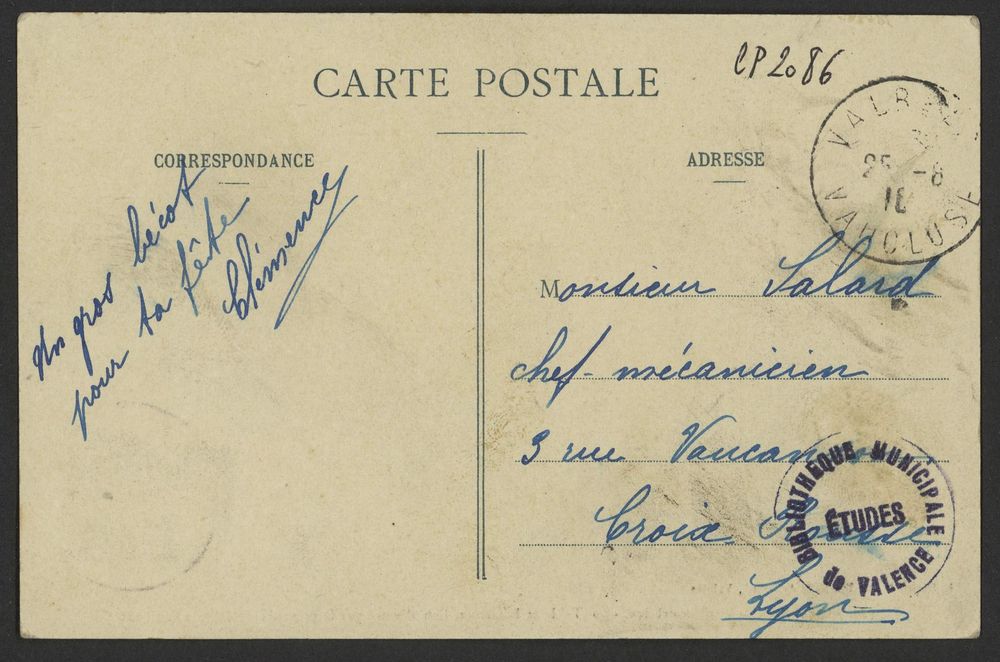 CP 2086
CARTE POSTALE
CORRESPONDANCE
Un gros bécot
pour ta fête
Clémence
ADRESSE
VALRÉAS
25 -8
VAUCLUSE
Monsieur Salard
chef-mécanicien
3 rue Vaucanson
Croix Rousse
Lyon
BIBLIOTHÈQUE MUNICIPALE
ÉTUDES
de VALENCE